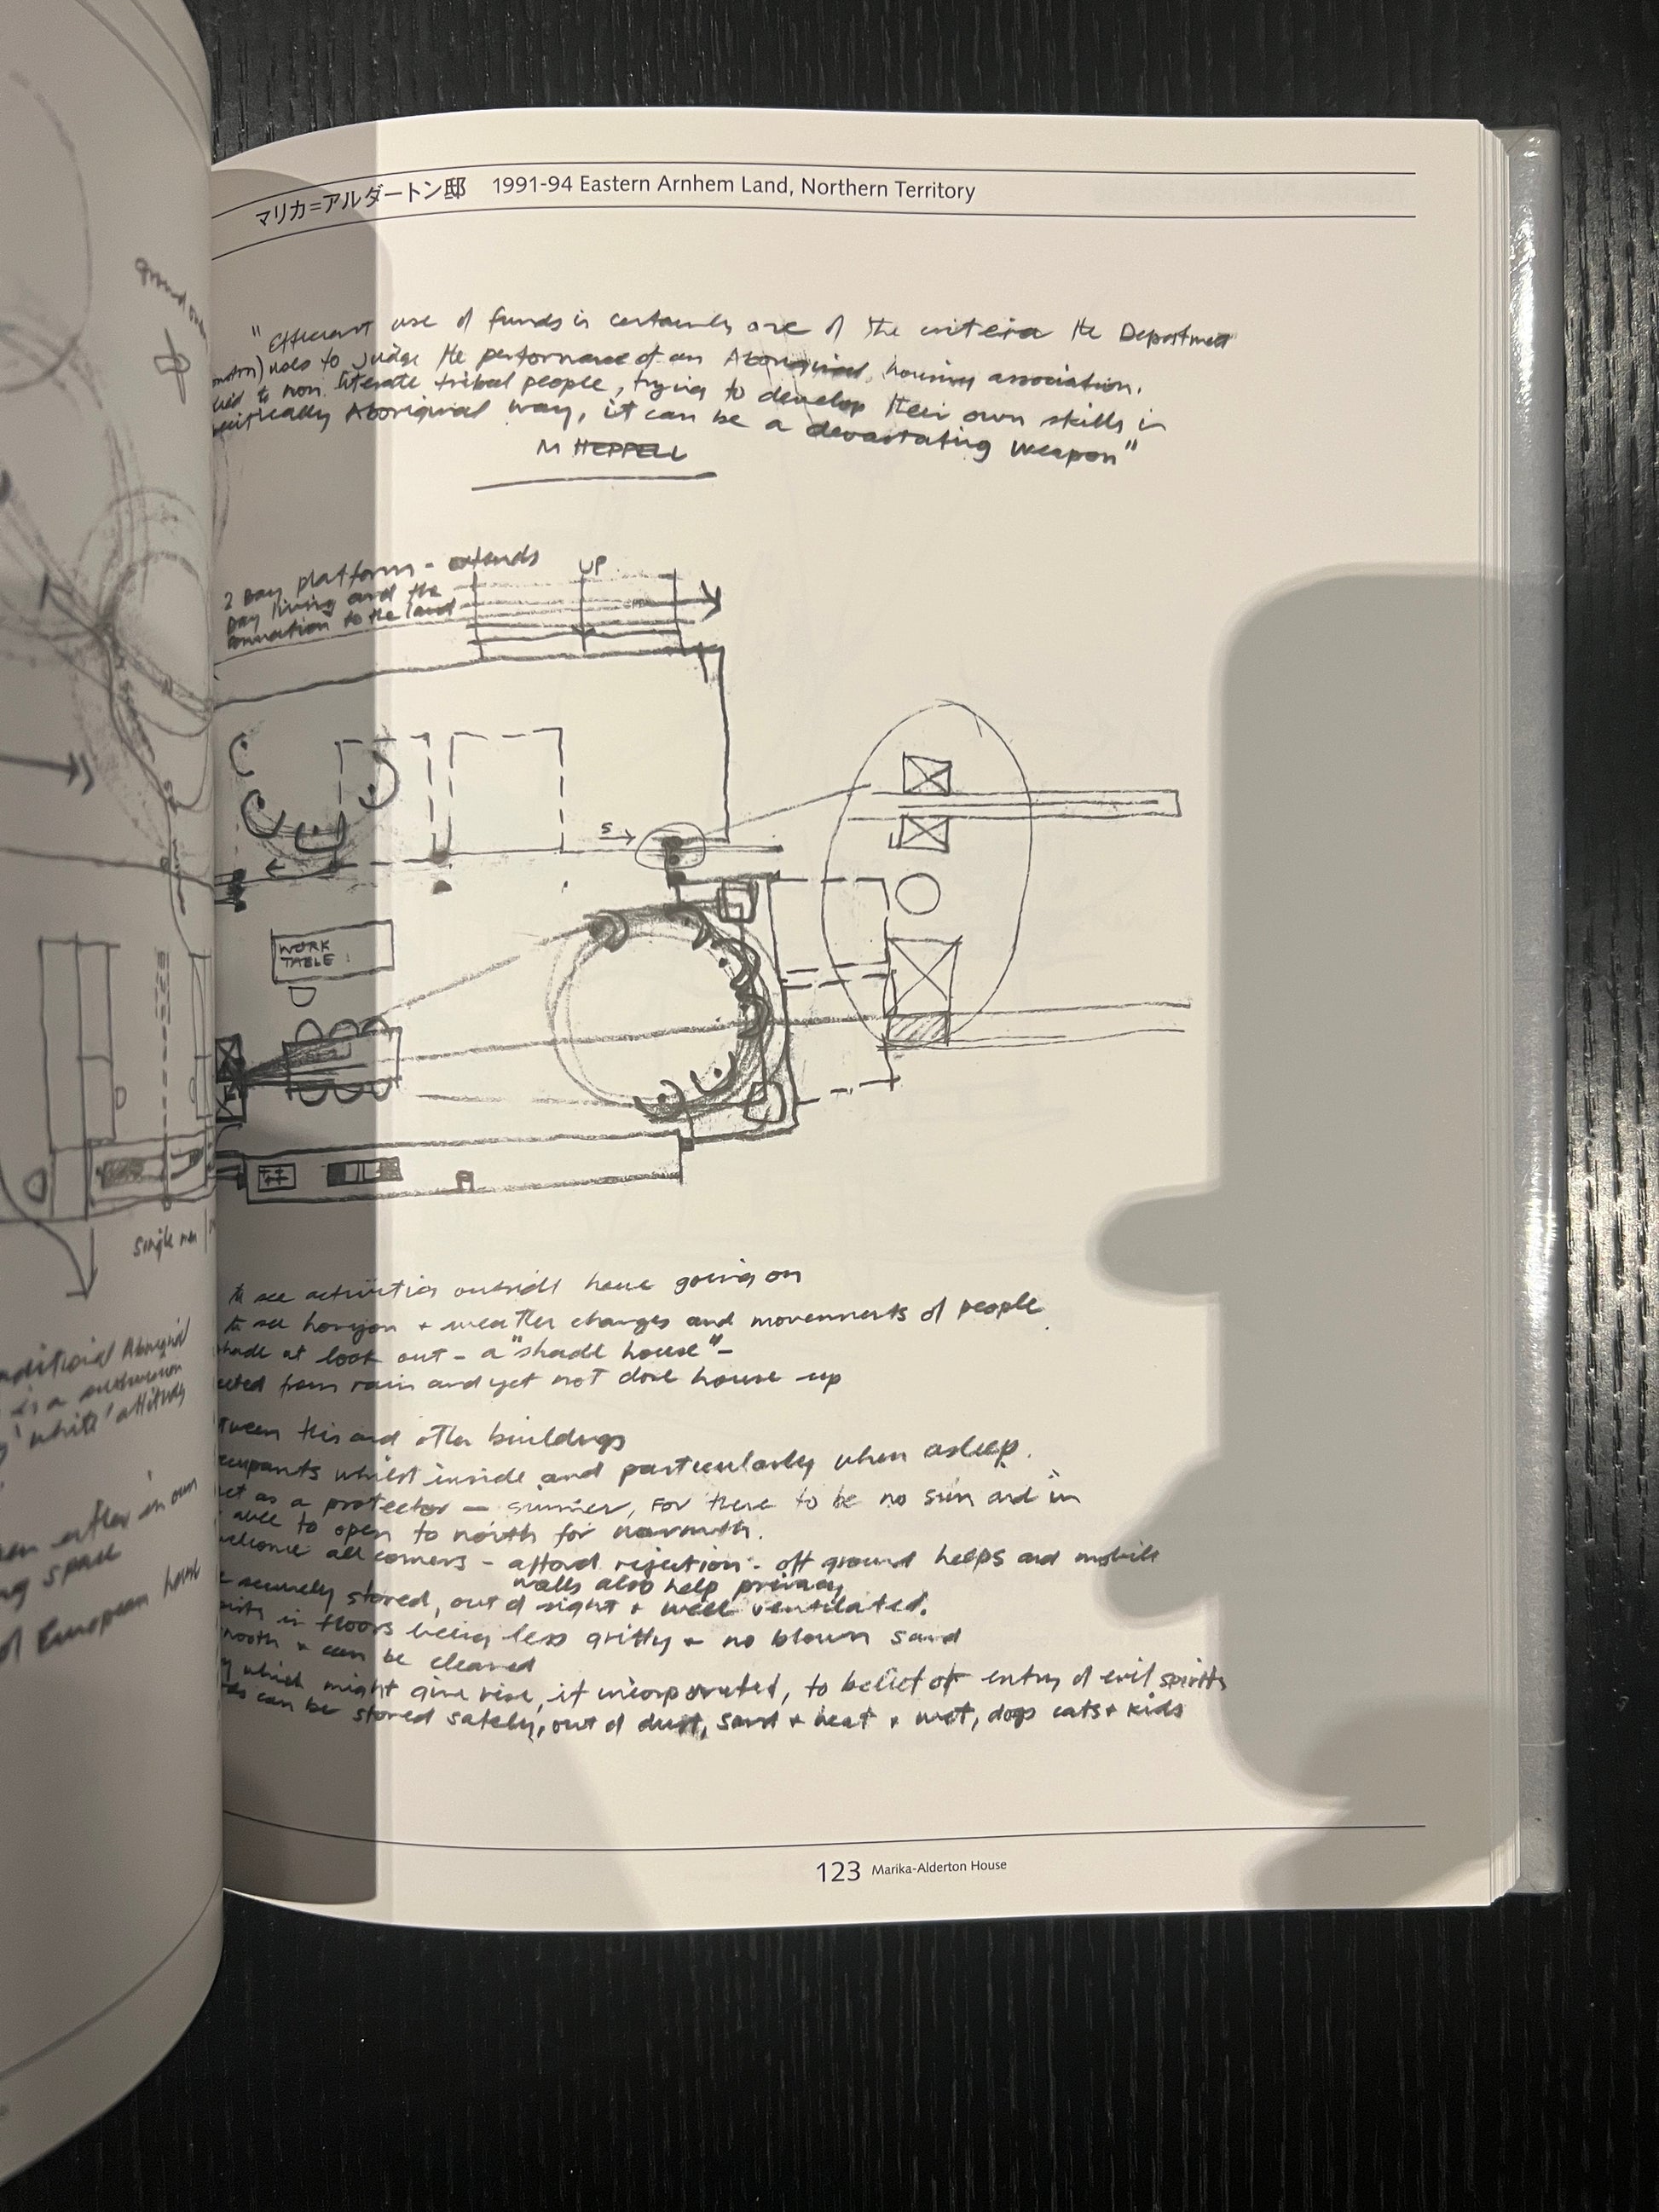 マリカ=アルダートン邸 1991-94 Eastern Arnhem Land, Northern Territory
ground
"Efficient use of funds is certainly one of the criteria the Department
uses to judge the performance of an Aboriginal housing association.
to non literate tribal people, trying to develop their own skills in
Aboriginal way, it can be a devastating weapon"
M HEPPELL
2 Bay platform - extends
Day living and the
connection to the land
UP
S
WORK
TABLE
single
to see activities outside house going on
to see horizon + weather changes and movements of people
at look out - a "shade house" -
from rain and yet not close house up
this and other buildings
whilst inside and particularly when asleep.
as a protector - summer, for there to be no sun and in
able to open to north for warmth.
all comers - afford rejection - off ground helps and mobile
walls also help privacy
securely stored, out of sight + well ventilated.
in floors being less gritty + no blown sand
+ can be cleaned
which might give rise, if incorporated, to belief of entry of evil spirits
can be stored safely, out of dust, sand + heat + wet, dogs cats + kids
Aboriginal
is a
'white' attitude
in own
space
of European house
123 Marika-Alderton House